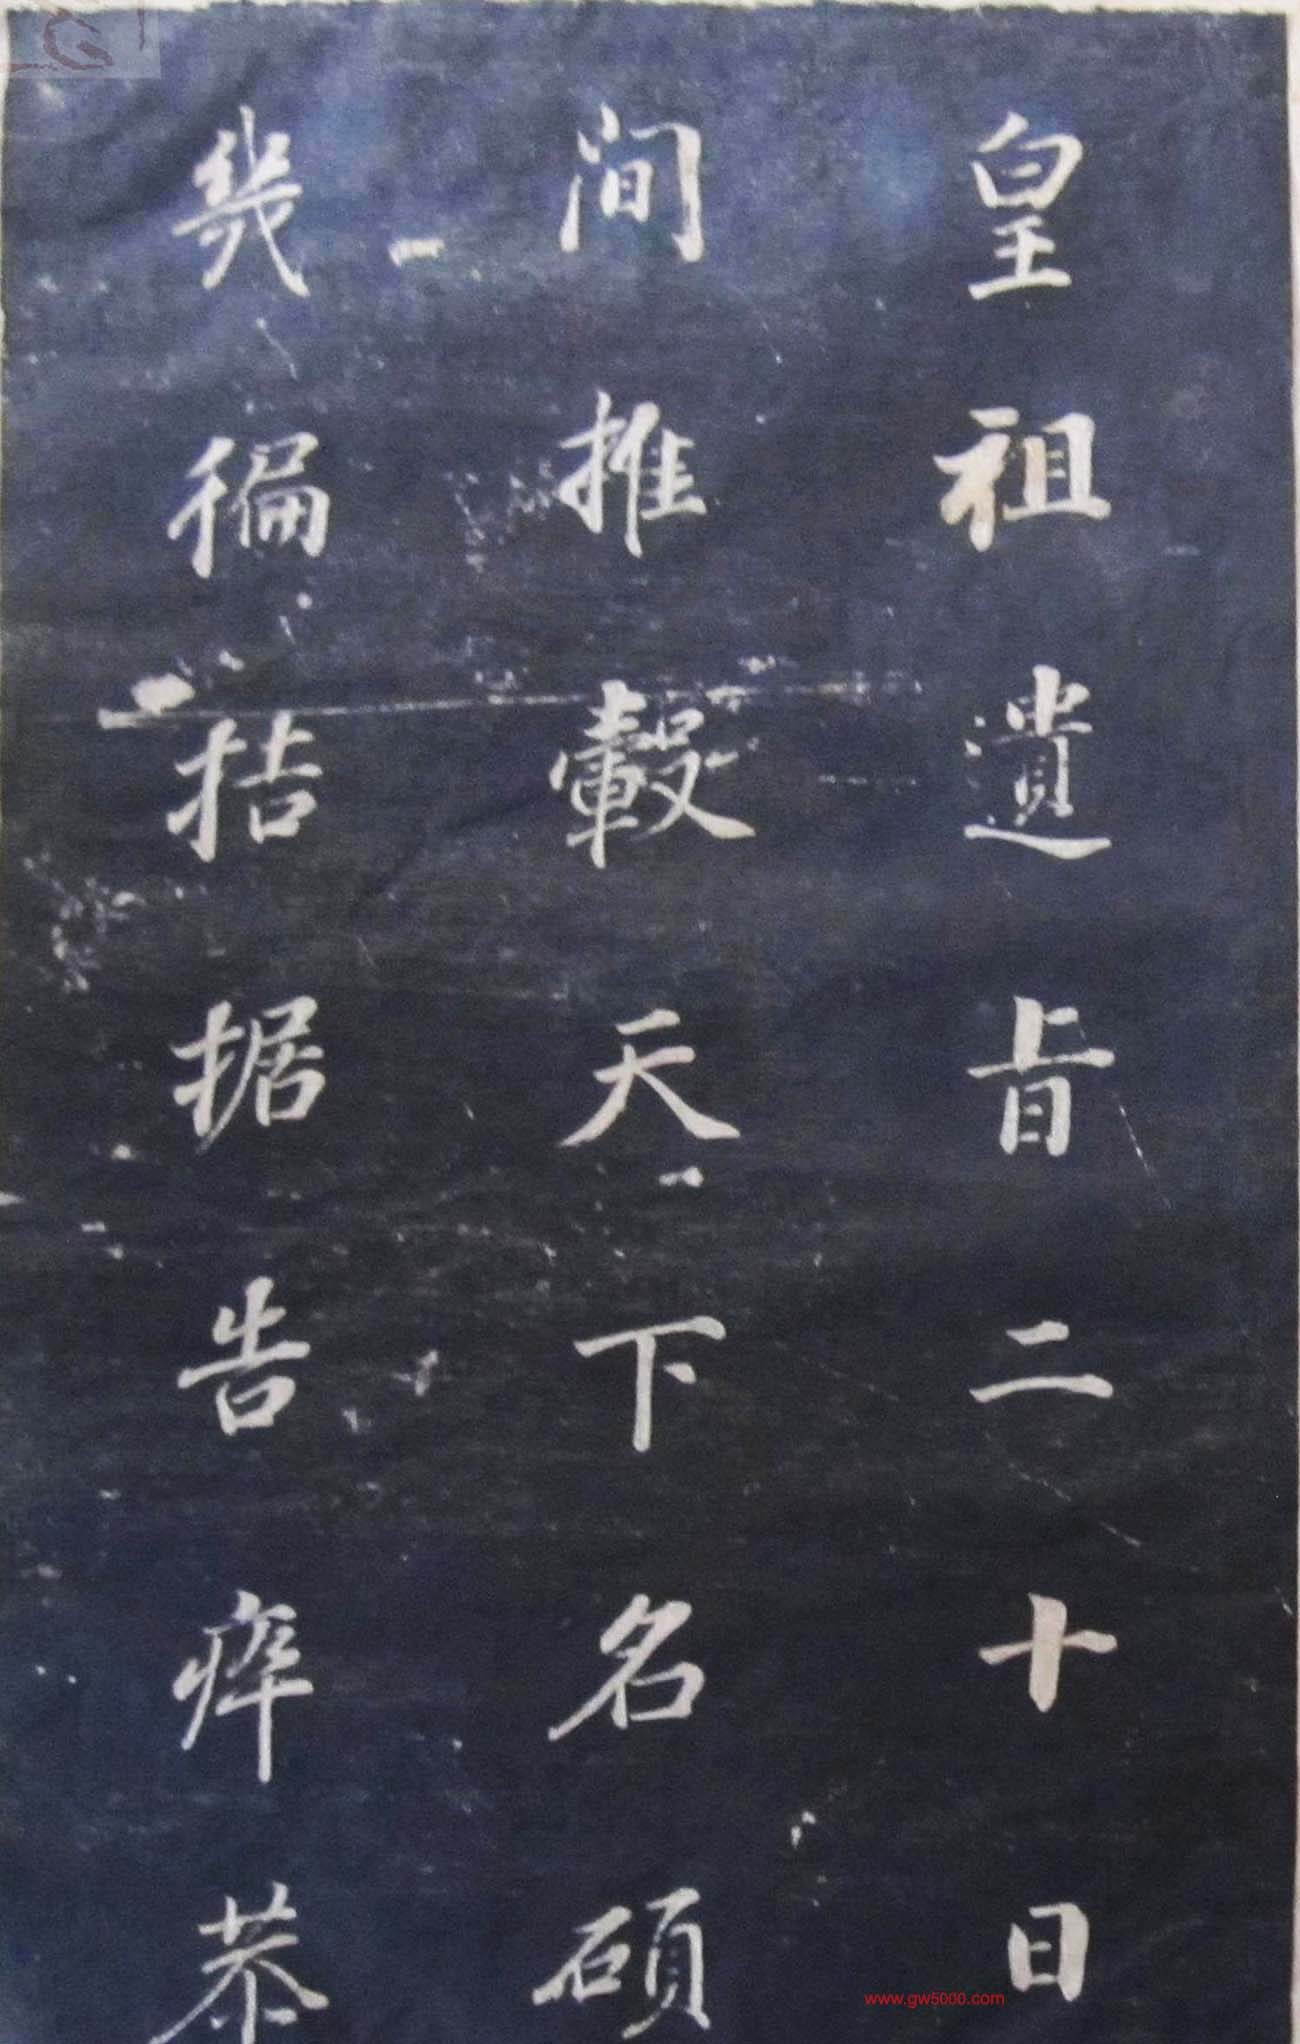 皇祖遺旨二十日
間推轂天下名碩
幾徧拮据告瘁恭
www.gw5000.com